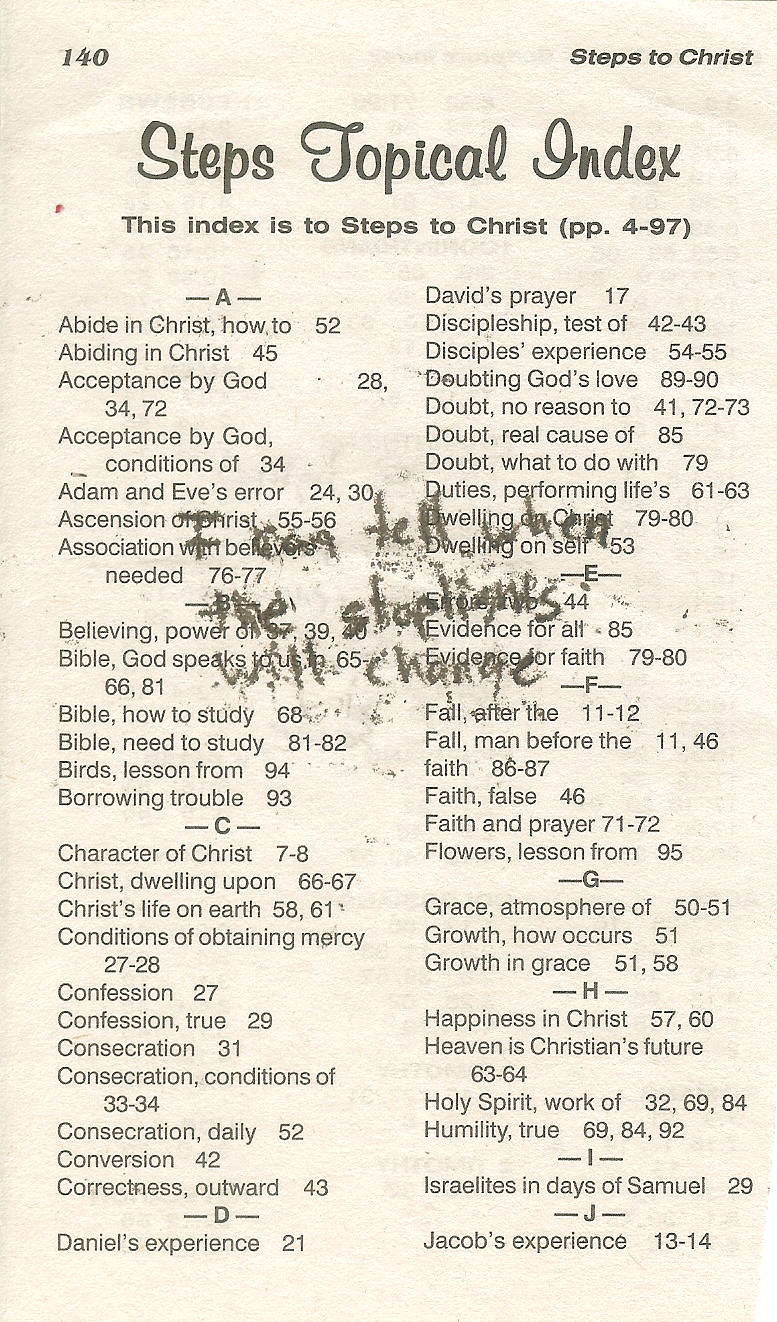 140 Steps to Christ
Steps Topical Index
This index is to Steps to Christ (pp. 4-97)
— A —
Abide in Christ, how to 52
Abiding in Christ 45
Acceptance by God 28,
34, 72
Acceptance by God,
conditions of 34
Adam and Eve's error 24, 30
Ascension of Christ 55-56
Association with believers
needed 76-77
— B —
Believing, power of 37, 39, 40
Bible, God speaks to us in 65-
66, 81
Bible, how to study 68
Bible, need to study 81-82
Birds, lesson from 94
Borrowing trouble 93
— C —
Character of Christ 7-8
Christ, dwelling upon 66-67
Christ's life on earth 58, 61
Conditions of obtaining mercy
27-28
Confession 27
Confession, true 29
Consecration 31
Consecration, conditions of
33-34
Consecration, daily 52
Conversion 42
Correctness, outward 43
— D —
Daniel's experience 21
David's prayer 17
Discipleship, test of 42-43
Disciples' experience 54-55
Doubting God's love 89-90
Doubt, no reason to 41, 72-73
Doubt, real cause of 85
Doubt, what to do with 79
Duties, performing life's 61-63
Dwelling on Christ 79-80
Dwelling on self 53
—E—
Errors, two 44
Evidence for all 85
Evidence for faith 79-80
—F—
Fall, after the 11-12
Fall, man before the 11, 46
faith 86-87
Faith, false 46
Faith and prayer 71-72
Flowers, lesson from 95
—G—
Grace, atmosphere of 50-51
Growth, how occurs 51
Growth in grace 51, 58
— H —
Happiness in Christ 57, 60
Heaven is Christian's future
63-64
Holy Spirit, work of 32, 69, 84
Humility, true 69, 84, 92
— I —
Israelites in days of Samuel 29
— J —
Jacob's experience 13-14
I can tell when
the stoplights
will change